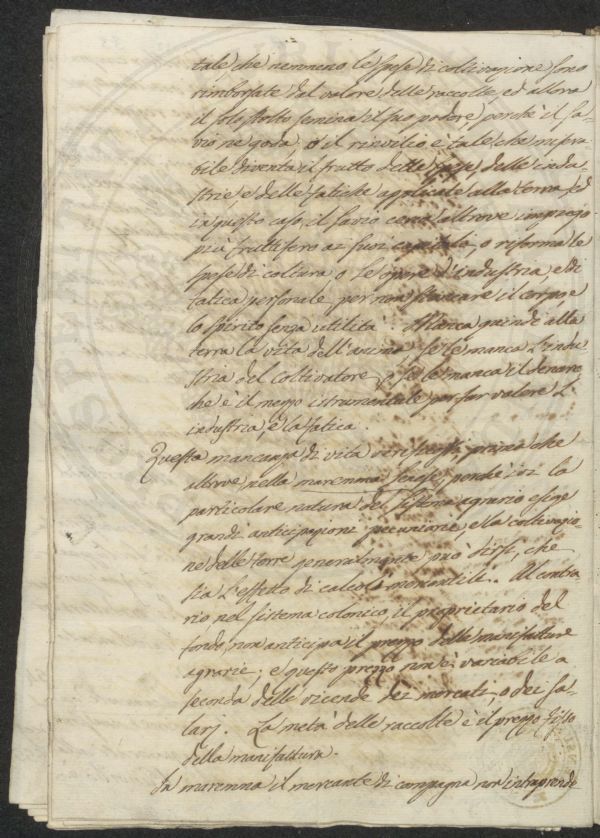 tale che nemmeno le spese di coltivazione sono
rimborsate dal valore delle raccolte, ed allora
il solo stolto semina il suo podere perchè il sa-
vio ne goda; o il rinvilio è tale che impro-
bile diventa il frutto delle spese, delle indu-
strie e delle fatiche applicate alla terra, ed
in questo caso, il savio cerca altrove impiego
più fruttifero ai suoi capitali, o riforma le
spese di coltura o le opere d'industria, e di
fatica personale per non stancare il corpo e
lo spirito senza utilità. Manca quindi alla
terra la vita dell'uomo se le manca l'indu-
stria del coltivatore, o se le manca il denaro
che è il mezzo istrumentale per far valere l'
industria, e la fatica.
Questa mancanza di vita prima che
altrove nella maremma Senese, perchè ivi la
particolare natura del sistema agrario esige
grandi anticipazioni pecuniarie, e la coltivazio-
ne delle terre generalmente può dirsi, che
sia l'effetto di calcoli mercantili. Al contra-
rio nel sistema colonico, il proprietario del
fondo, non anticipa il prezzo delle manifatture
agrarie; e questo prezzo non è variabile a
seconda delle vicende dei mercati, o dei sa-
larj. La metà delle raccolte è il prezzo fisso
della manifattura.
In maremma il mercante di campagna non intraprende